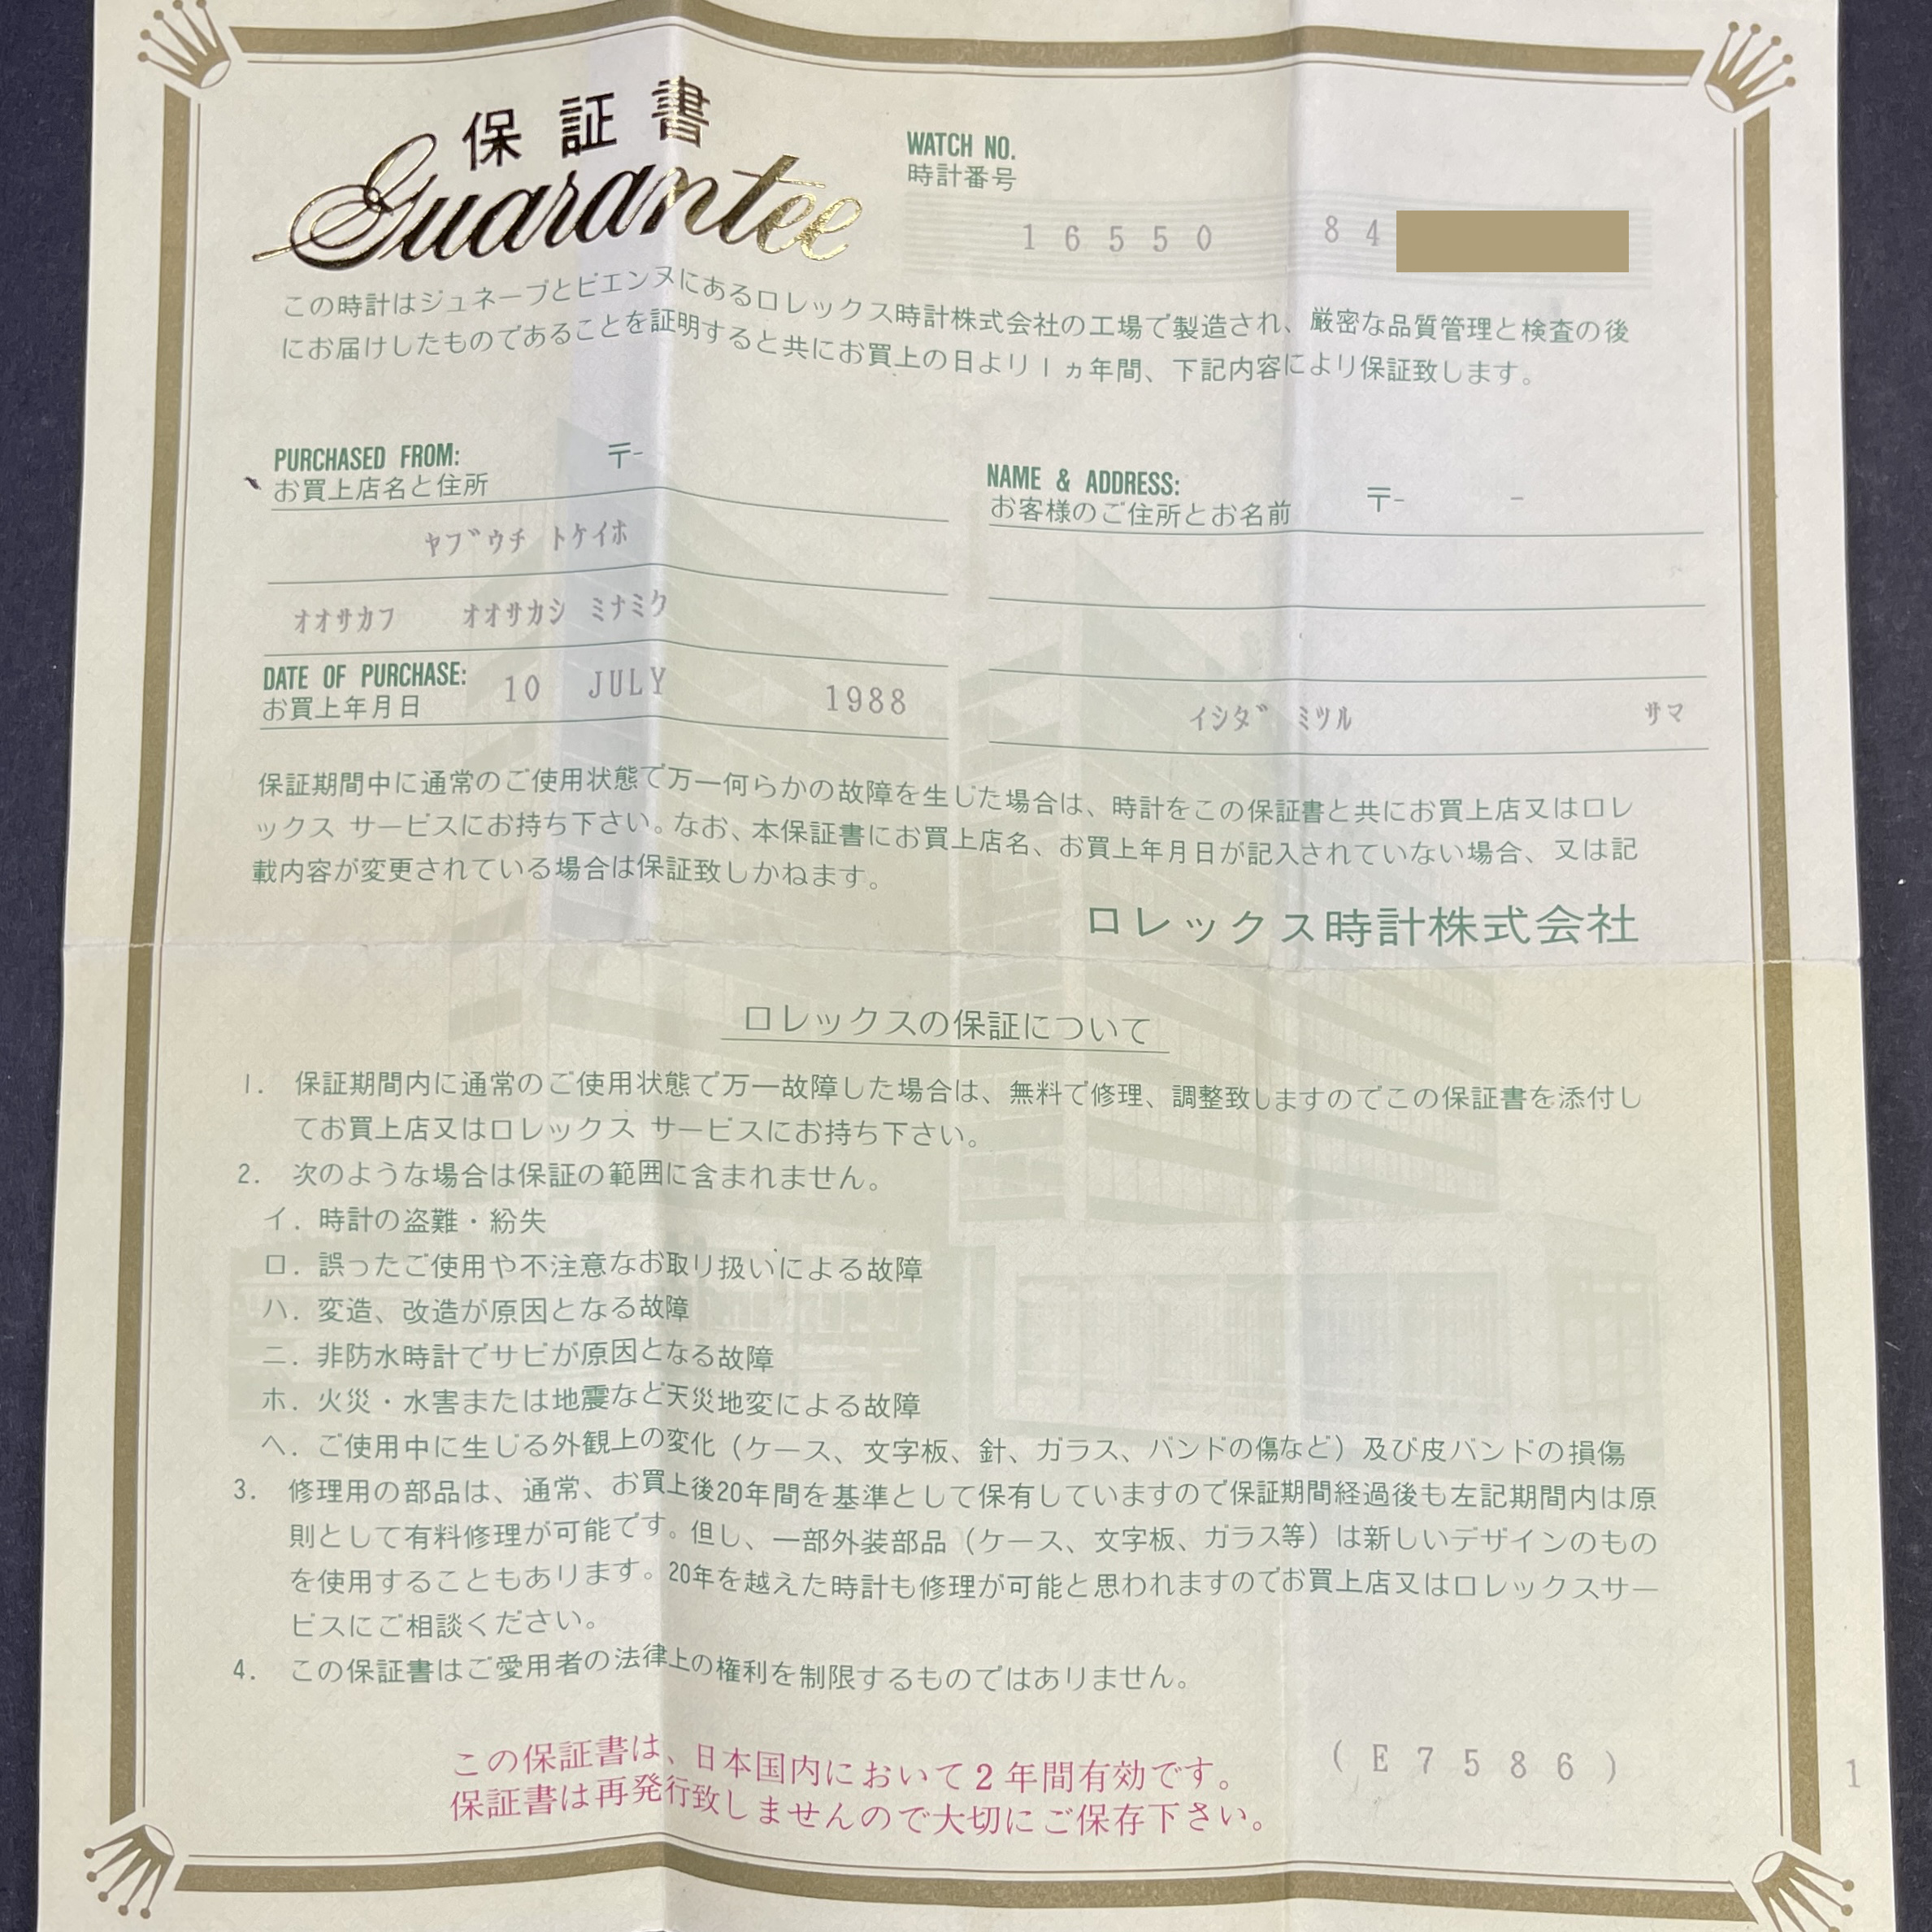 保証書
Guarantee
WATCH NO.
時計番号
16550 84
この時計はジュネーブとビエンヌにあるロレックス時計株式会社の工場で製造され、厳密な品質管理と検査の後
にお届けしたものであることを証明すると共にお買上の日より1ヵ年間、下記内容により保証致します。
PURCHASED FROM: 〒-
お買上店名と住所
ヤブウチ トケイホ
オオサカフ オオサカシ ミナミク
DATE OF PURCHASE: 10 JULY 1988
お買上年月日
NAME & ADDRESS: 〒- -
お客様のご住所とお名前
イシダ ミツル サマ
保証期間中に通常のご使用状態で万一何らかの故障を生じた場合は、時計をこの保証書と共にお買上店又はロレ
ックス サービスにお持ち下さい。なお、本保証書にお買上店名、お買上年月日が記入されていない場合、又は記
載内容が変更されている場合は保証致しかねます。
ロレックス時計株式会社
ロレックスの保証について
1. 保証期間内に通常のご使用状態で万一故障した場合は、無料で修理、調整致しますのでこの保証書を添付し
てお買上店又はロレックス サービスにお持ち下さい。
2. 次のような場合は保証の範囲に含まれません。
イ. 時計の盗難・紛失
ロ. 誤ったご使用や不注意なお取り扱いによる故障
ハ. 変造、改造が原因となる故障
ニ. 非防水時計でサビが原因となる故障
ホ. 火災・水害または地震など天災地変による故障
ヘ. ご使用中に生じる外観上の変化（ケース、文字板、針、ガラス、バンドの傷など）及び皮バンドの損傷
3. 修理用の部品は、通常、お買上後20年間を基準として保有していますので保証期間経過後も左記期間内は原
則として有料修理が可能です。但し、一部外装部品（ケース、文字板、ガラス等）は新しいデザインのもの
を使用することもあります。20年を越えた時計も修理が可能と思われますのでお買上店又はロレックスサー
ビスにご相談ください。
4. この保証書はご愛用者の法律上の権利を制限するものではありません。
この保証書は、日本国内において2年間有効です。
保証書は再発行致しませんので大切にご保存下さい。
(E7586)
1